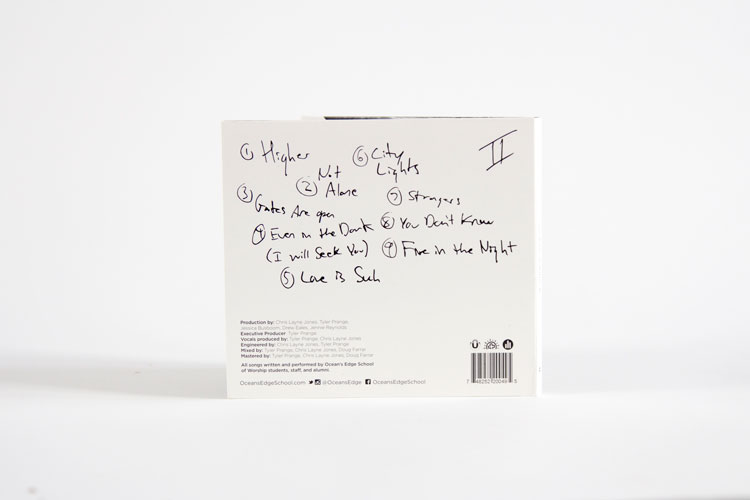 ① Higher
② Not
Alone
③ Gates Are open
④ Even in the Dark
(I will Seek You)
⑤ Love Is Such
⑥ City
Lights
⑦ Strangers
⑧ You Don't Know
⑨ Fire in the Night
II
Production by: Chris Layne Jones, Tyler Prange,
Jessica Busboom, Drew Eakes, Jennie Reynolds
Executive Producer: Tyler Prange
Vocals produced by: Tyler Prange, Chris Layne Jones
Engineered by: Chris Layne Jones, Tyler Prange
Mixed by: Tyler Prange, Chris Layne Jones, Doug Farrar
Mastered by: Tyler Prange, Chris Layne Jones, Doug Farrar
All songs written and performed by Ocean's Edge School
of Worship students, staff, and alumni.
OceansEdgeSchool.com @OceansEdge OceansEdgeSchool